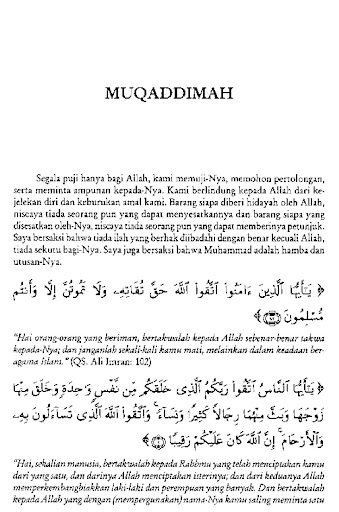 MUQADDIMAH
Segala puji hanya bagi Allah, kami memuji-Nya, memohon pertolongan,
serta meminta ampunan kepada-Nya. Kami berlindung kepada Allah dari ke-
jelekan diri dan keburukan amal kami. Barang siapa diberi hidayah oleh Allah,
niscaya tiada seorang pun yang dapat menyesatkannya dan barang siapa yang
disesatkan oleh-Nya, niscaya tiada seorang pun yang dapat memberinya petunjuk.
Saya bersaksi bahwa tiada ilah yang berhak diibadahi dengan benar kecuali Allah,
tiada sekutu bagi-Nya. Saya juga bersaksi bahwa Muhammad adalah hamba dan
utusan-Nya.
﴿ يَـٰٓأَيُّهَا ٱلَّذِينَ ءَامَنُوا۟ ٱتَّقُوا۟ ٱللَّهَ حَقَّ تُقَاتِهِۦ وَلَا تَمُوتُنَّ إِلَّا وَأَنتُم
مُّسْلِمُونَ ﴿١٠٢﴾ ﴾
"Hai orang-orang yang beriman, bertakwalah kepada Allah sebenar-benar takwa
kepada-Nya; dan janganlah sekali-kali kamu mati, melainkan dalam keadaan ber-
agama Islam." (QS. Ali Imran: 102)
﴿ يَـٰٓأَيُّهَا ٱلنَّاسُ ٱتَّقُوا۟ رَبَّكُمُ ٱلَّذِى خَلَقَكُم مِّن نَّفْسٍ وَٰحِدَةٍ وَخَلَقَ مِنْهَا
زَوْجَهَا وَبَثَّ مِنْهُمَا رِجَالًا كَثِيرًا وَنِسَآءً ۚ وَٱتَّقُوا۟ ٱللَّهَ ٱلَّذِى تَسَآءَلُونَ بِهِۦ
وَٱلْأَرْحَامَ ۚ إِنَّ ٱللَّهَ كَانَ عَلَيْكُمْ رَقِيبًا ﴿١﴾ ﴾
"Hai, sekalian manusia, bertakwalah kepada Rabbmu yang telah menciptakan kamu
dari yang satu, dan darinya Allah menciptakan isterinya; dan dari keduanya Allah
memperkembangbiakkan laki-laki dan perempuan yang banyak. Dan bertakwalah
kepada Allah yang dengan (mempergunakan) nama-Nya kamu saling meminta satu